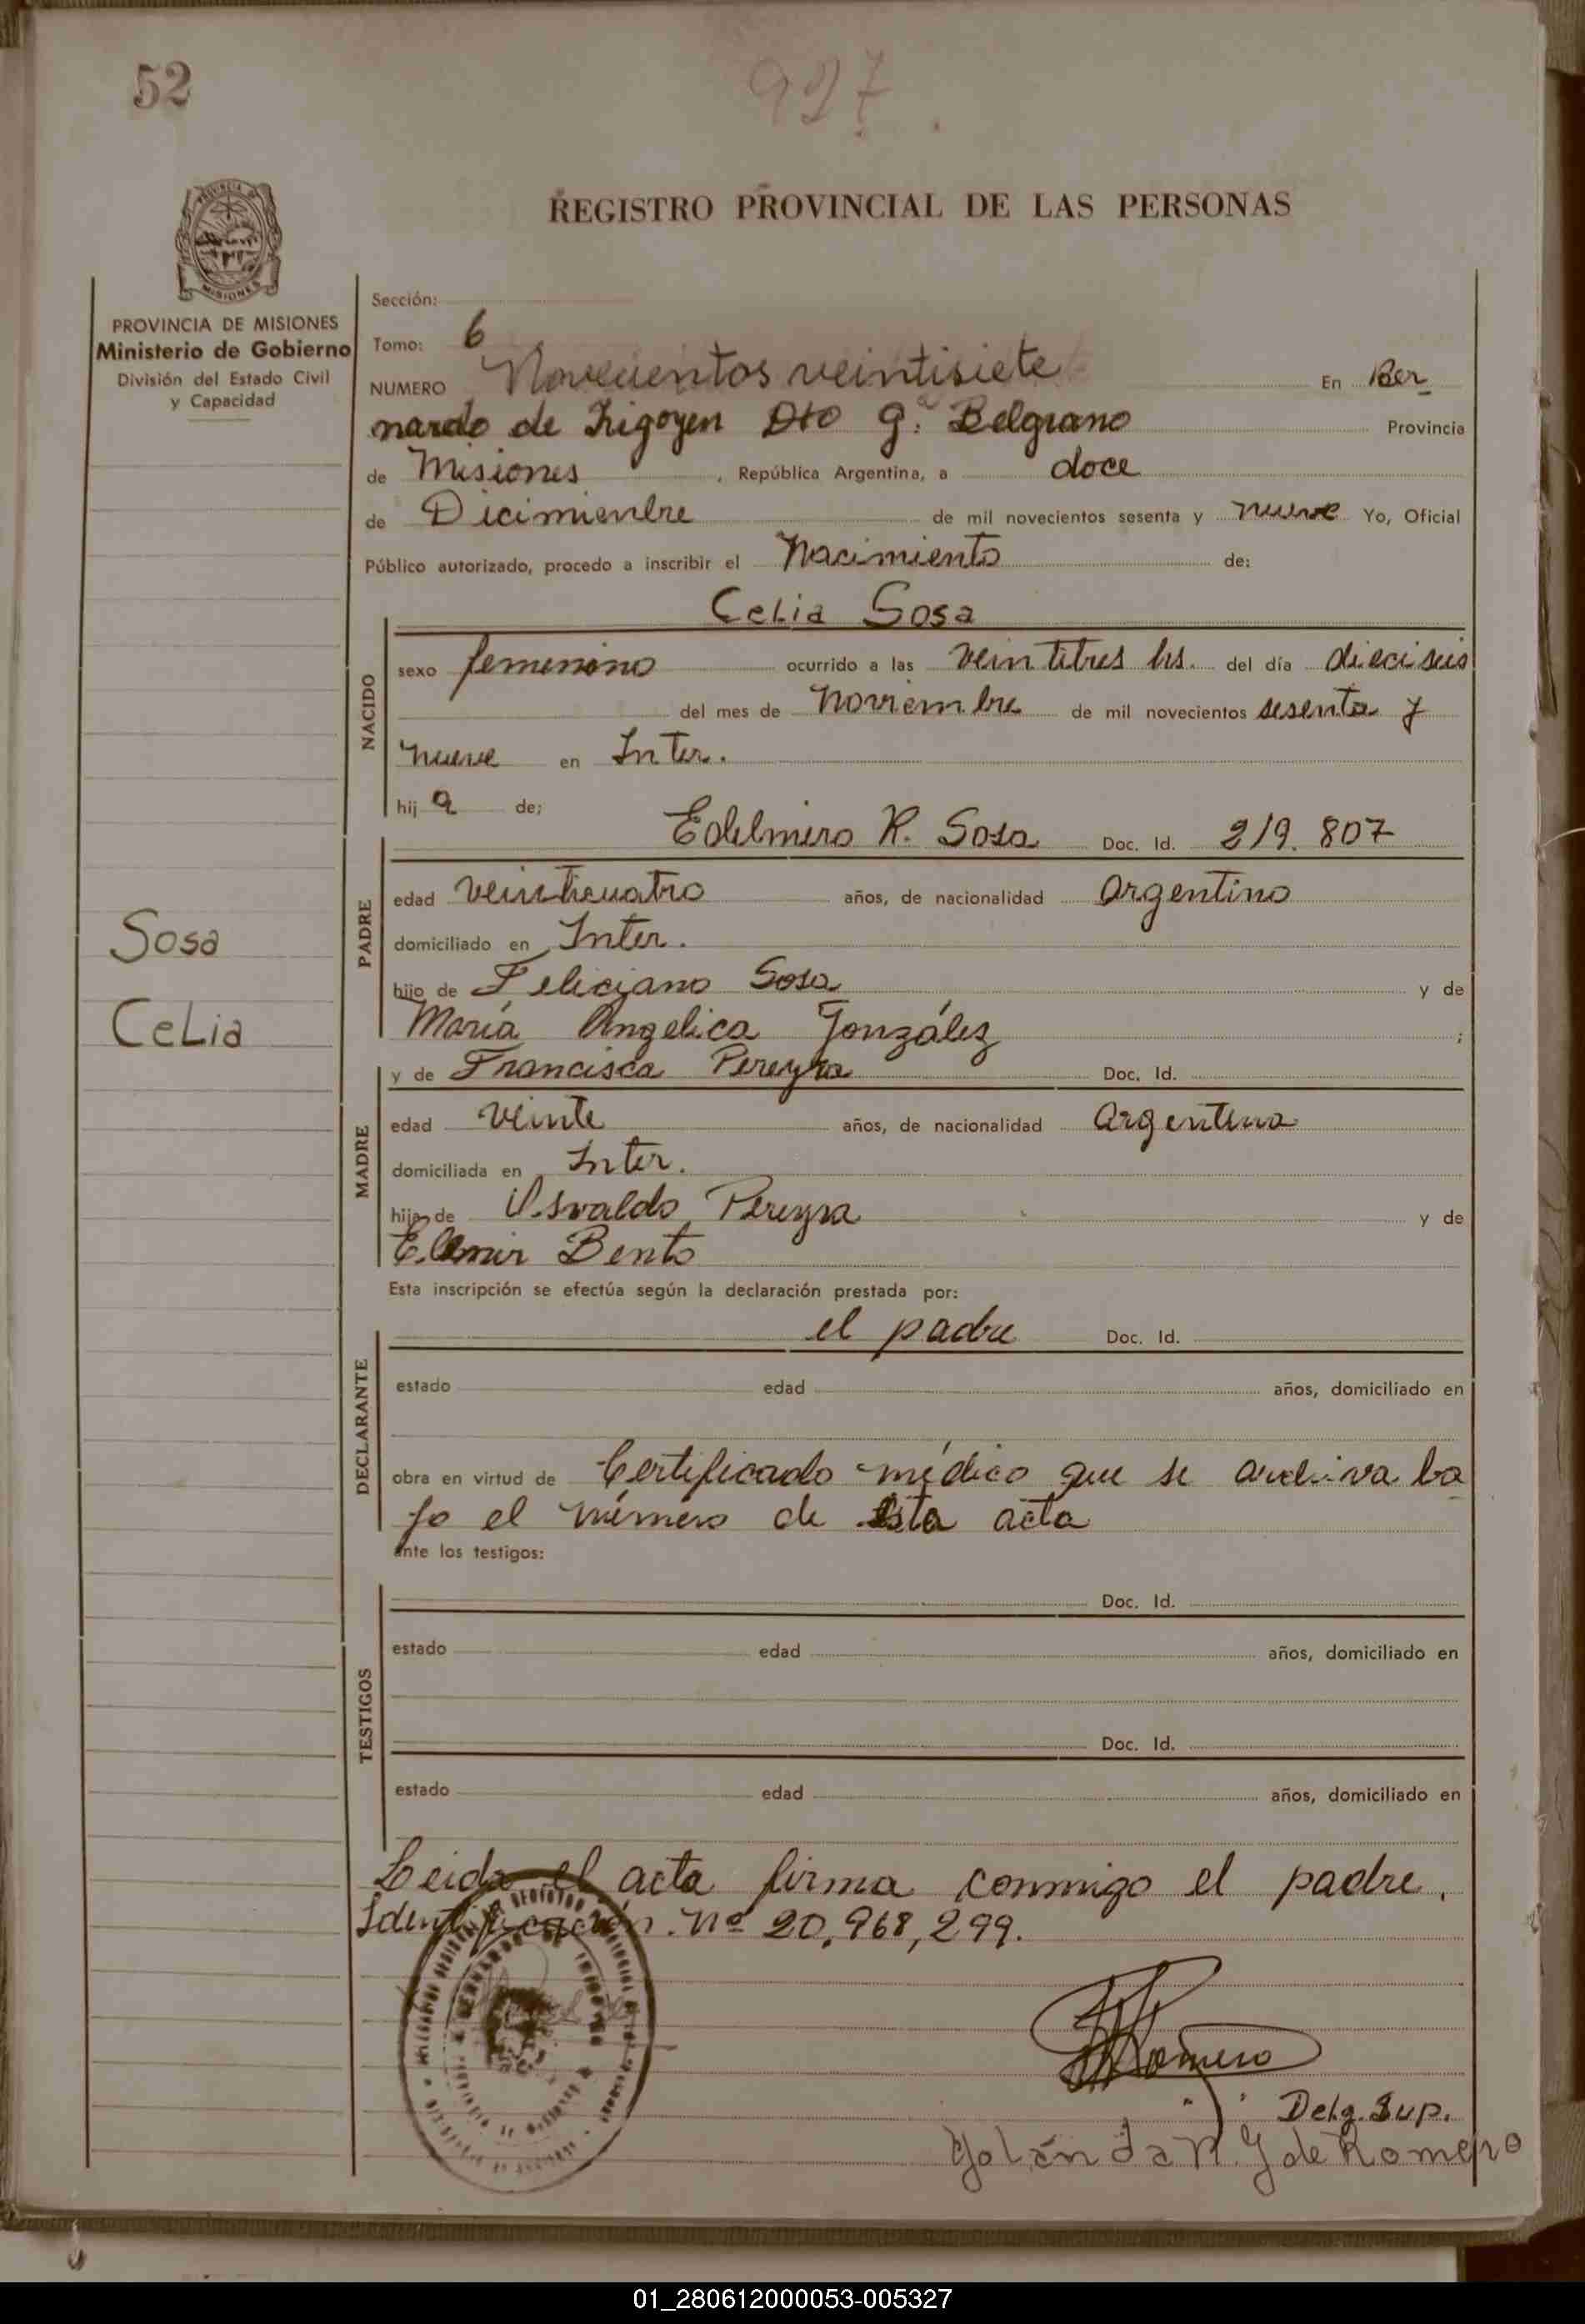 52
927
REGISTRO PROVINCIAL DE LAS PERSONAS
PROVINCIA DE MISIONES
Ministerio de Gobierno
División del Estado Civil
y Capacidad
Sosa
Celia
Sección:
Tomo: 6
NUMERO Novecientos veintisiete En Ber
nardo de Irigoyen Dto G. Belgrano Provincia
de Misiones, República Argentina, a doce
de Dicimienbre de mil novecientos sesenta y nueve Yo, Oficial
Público autorizado, procedo a inscribir el Nacimiento de:
Celia Sosa
NACIDO
sexo femenino ocurrido a las veintitres hs. del día dieciseis
del mes de noviembre de mil novecientos sesenta y
nueve en Inter.
hij a de;
PADRE
Edelmiro R. Sosa Doc. Id. 219.807
edad veinticuatro años, de nacionalidad argentino
domiciliado en Inter.
hijo de Feliciano Sosa y de
María Angelica González ;
MADRE
y de Francisca Pereyra Doc. Id.
edad veinte años, de nacionalidad argentina
domiciliada en Inter.
hija de Osvaldo Pereyra y de
Bento
Esta inscripción se efectúa según la declaración prestada por:
DECLARANTE
el padre Doc. Id.
estado edad años, domiciliado en
obra en virtud de Certificado médico que se archiva ba
jo el número de esta acta
ante los testigos:
TESTIGOS
Doc. Id.
estado edad años, domiciliado en
Doc. Id.
estado edad años, domiciliado en
Leida el acta firma conmigo el padre.
Identificación. Nº 20,968,299.
Romero
Delg. Sup.
Yolanda N. G de Romero
01_280612000053-005327